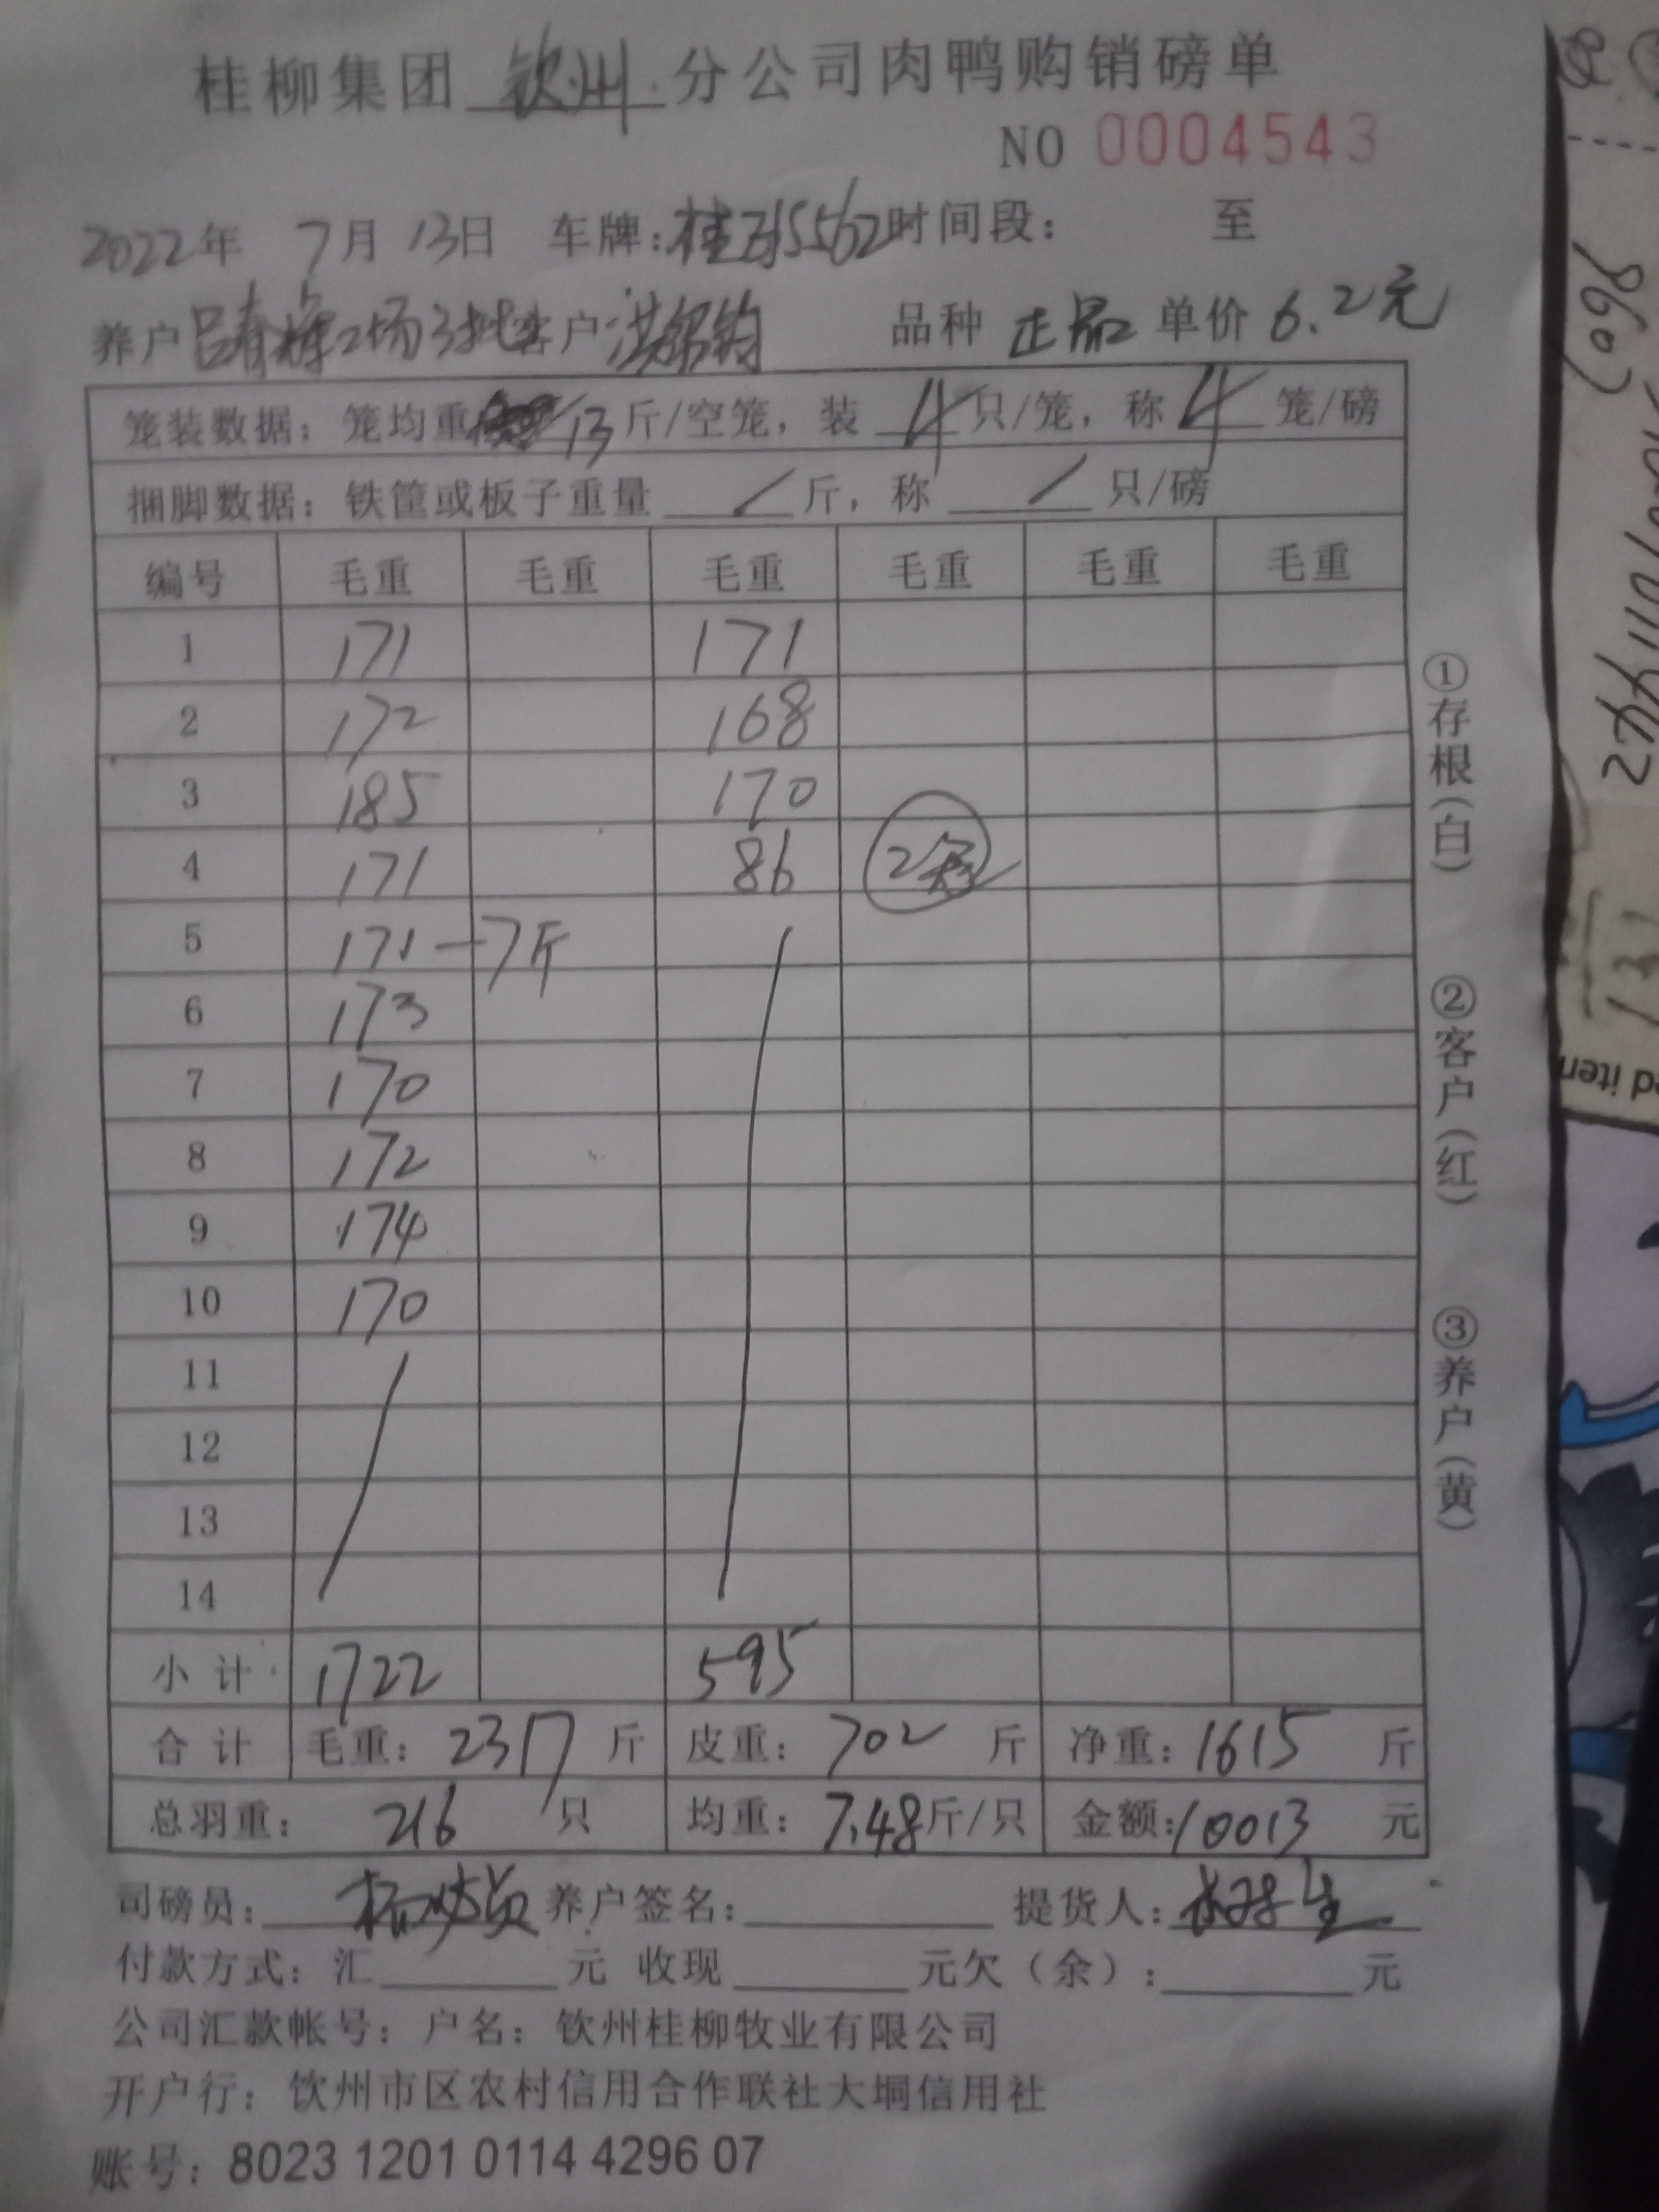 桂柳集团 钦州 分公司肉鸭购销磅单
NO 0004543
2022年 7月 13日 车牌: 时间段: 至
养户 2场3批 客户 品种 正品 单价 6.2元
笼装数据: 笼均重 13 斤/空笼, 装 4 只/笼, 称 4 笼/磅
捆脚数据: 铁筐或板子重量 / 斤, 称 / 只/磅
编号 毛重 毛重 毛重 毛重 毛重 毛重
1 171 171
2 172 168
3 185 170
4 171 86 2笼
5 171 -7斤
6 173
7 170
8 172
9 174
10 170
11
12
13
14
小 计 1722 595
合 计 毛重: 2317 斤 皮重: 702 斤 净重: 1615 斤
总羽重: 216 只 均重: 7.48 斤/只 金额: 10013 元
司磅员: 养户签名: 提货人:
付款方式: 汇 元 收现 元欠(余): 元
公司汇款帐号: 户名: 钦州桂柳牧业有限公司
开户行: 钦州市区农村信用合作联社大垌信用社
账号: 8023 1201 0114 4296 07
①存根(白)
②客户(红)
③养户(黄)